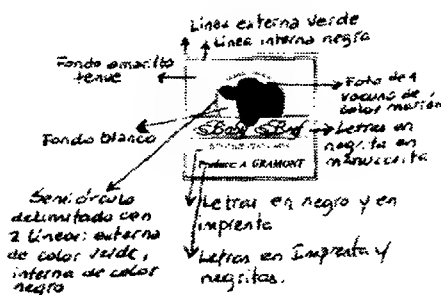 Línea externa verde
Línea interna negra
Fondo amarillo
tenue
Foto de 1
vacuno de
color marrón
Fondo blanco
Baby Beef
Letras en
negrita en
manuscrita
Produce: A GRAMONT
Semicírculo
delimitado con
2 Líneas: externa
de color verde,
interna de color
negro
Letras en negro y en
imprenta
Letras en Imprenta y
negritas.